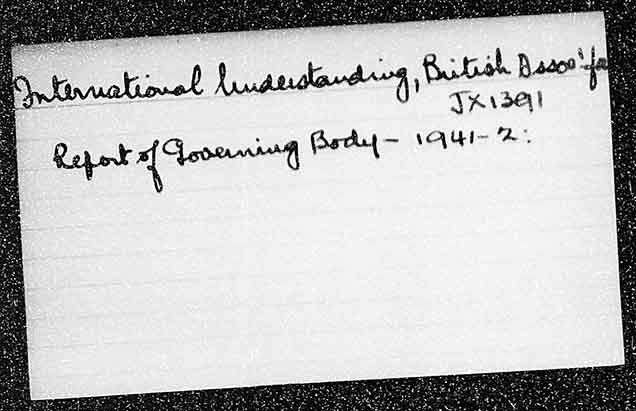 International Understanding, British Assoc'. for
JX1391
Report of Governing Body - 1941-2: